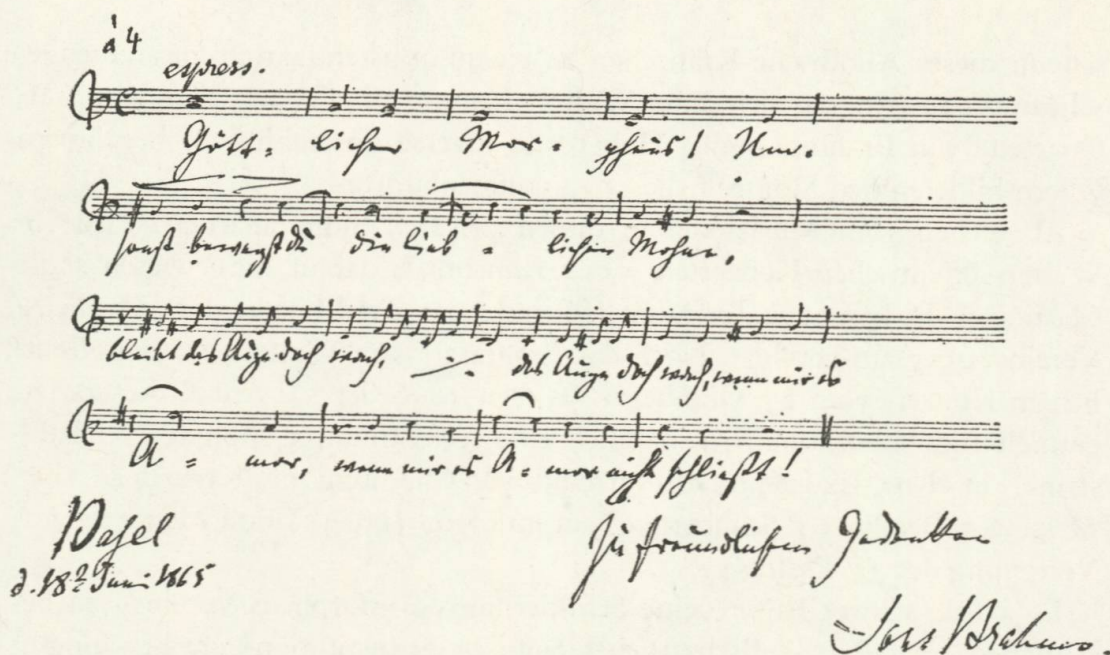 à 4
express.
Gött- licher Mor- pheus! Um-
sonst bewegst du die lieb- lichen Mohne,
bleibt das Auge doch wach, das Auge doch wach, wenn mir es
A- mor, wenn mir es A- mor nicht schließt!
Basel
d. 18t Juni 1865
Zu freundlichem Gedenken
Johs Brahms.